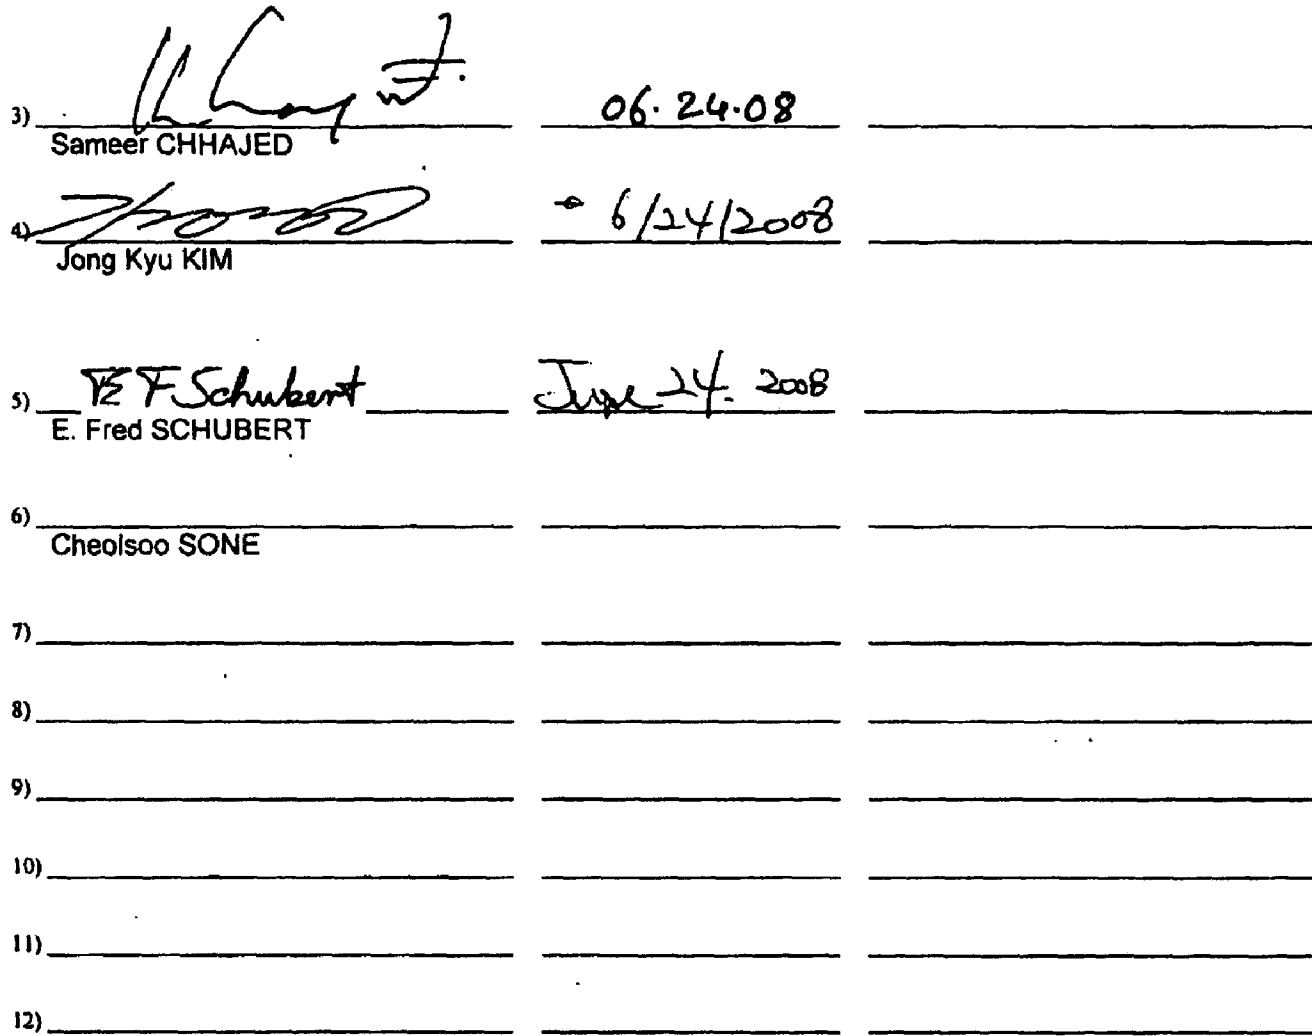 3) 06.24.08
Sameer CHHAJED
4) 6/24/2008
Jong Kyu KIM
5) E F Schubert June 24. 2008
E. Fred SCHUBERT
6)
Cheolsoo SONE
7)
8)
9)
10)
11)
12)